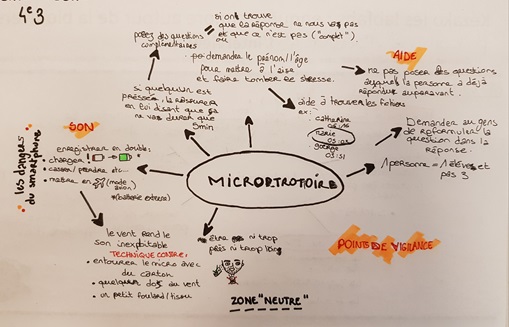 4e3
si on trouve
que la réponse ne nous va pas
ou
que ce n'est pas ("complet").
posez des questions
complémentaires
AIDE
ne pas poser des questions
auquel la personne à déjà
répondue auparavant.
demander le prénom/l'âge
pour mettre à l'aise
et faire tomber le stresse.
si quelqu'un est
pressée, la rassurer
en lui disant que ça
ne va durer que
5min
aide à trouver les fichiers
ex:
catherine
marie
03:03
george
03:51
Demander au gens
de reformuler la
question dans la
réponse.
1 personne = 1 élève et
pas 3
SON
enregistrer en double:
• charger
• casser/perdre etc...
• mettre en (mode
avion)
(batterie externe)
Les dangers
du smartphone
MICROTROTTOIRE
le vent rend le
son inexploitable
TECHNIQUE CONTRE:
• entourer le micro avec
du carton
• quelqu'un dos au vent
• un petit foulard/tissu
être ni trop
près ni trop loin
ZONE "NEUTRE"
POINTS DE VIGILANCE